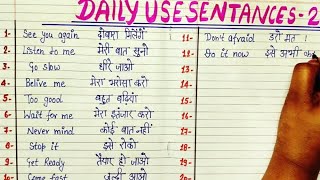 DAILY USE SENTANCES-2
1- See you again दोबारा मिलेंगे
2- Listen to me मेरी बात सुनो
3- Go slow धीरे जाओ
4- Belive me मेरा भरोसा करो
5- Too good बहुत बढ़िया
6- Wait for me मेरा इंतजार करो
7- Never mind कोई बात नहीं
8- Stop it इसे रोको
9- Get Ready तैयार हो जाओ
10- Come fast जल्दी आओ
11- Don't afraid डरो मत ।
12- Do it now इसे अभी
13-
14-
15-
16-
17-
18-
19-
20-